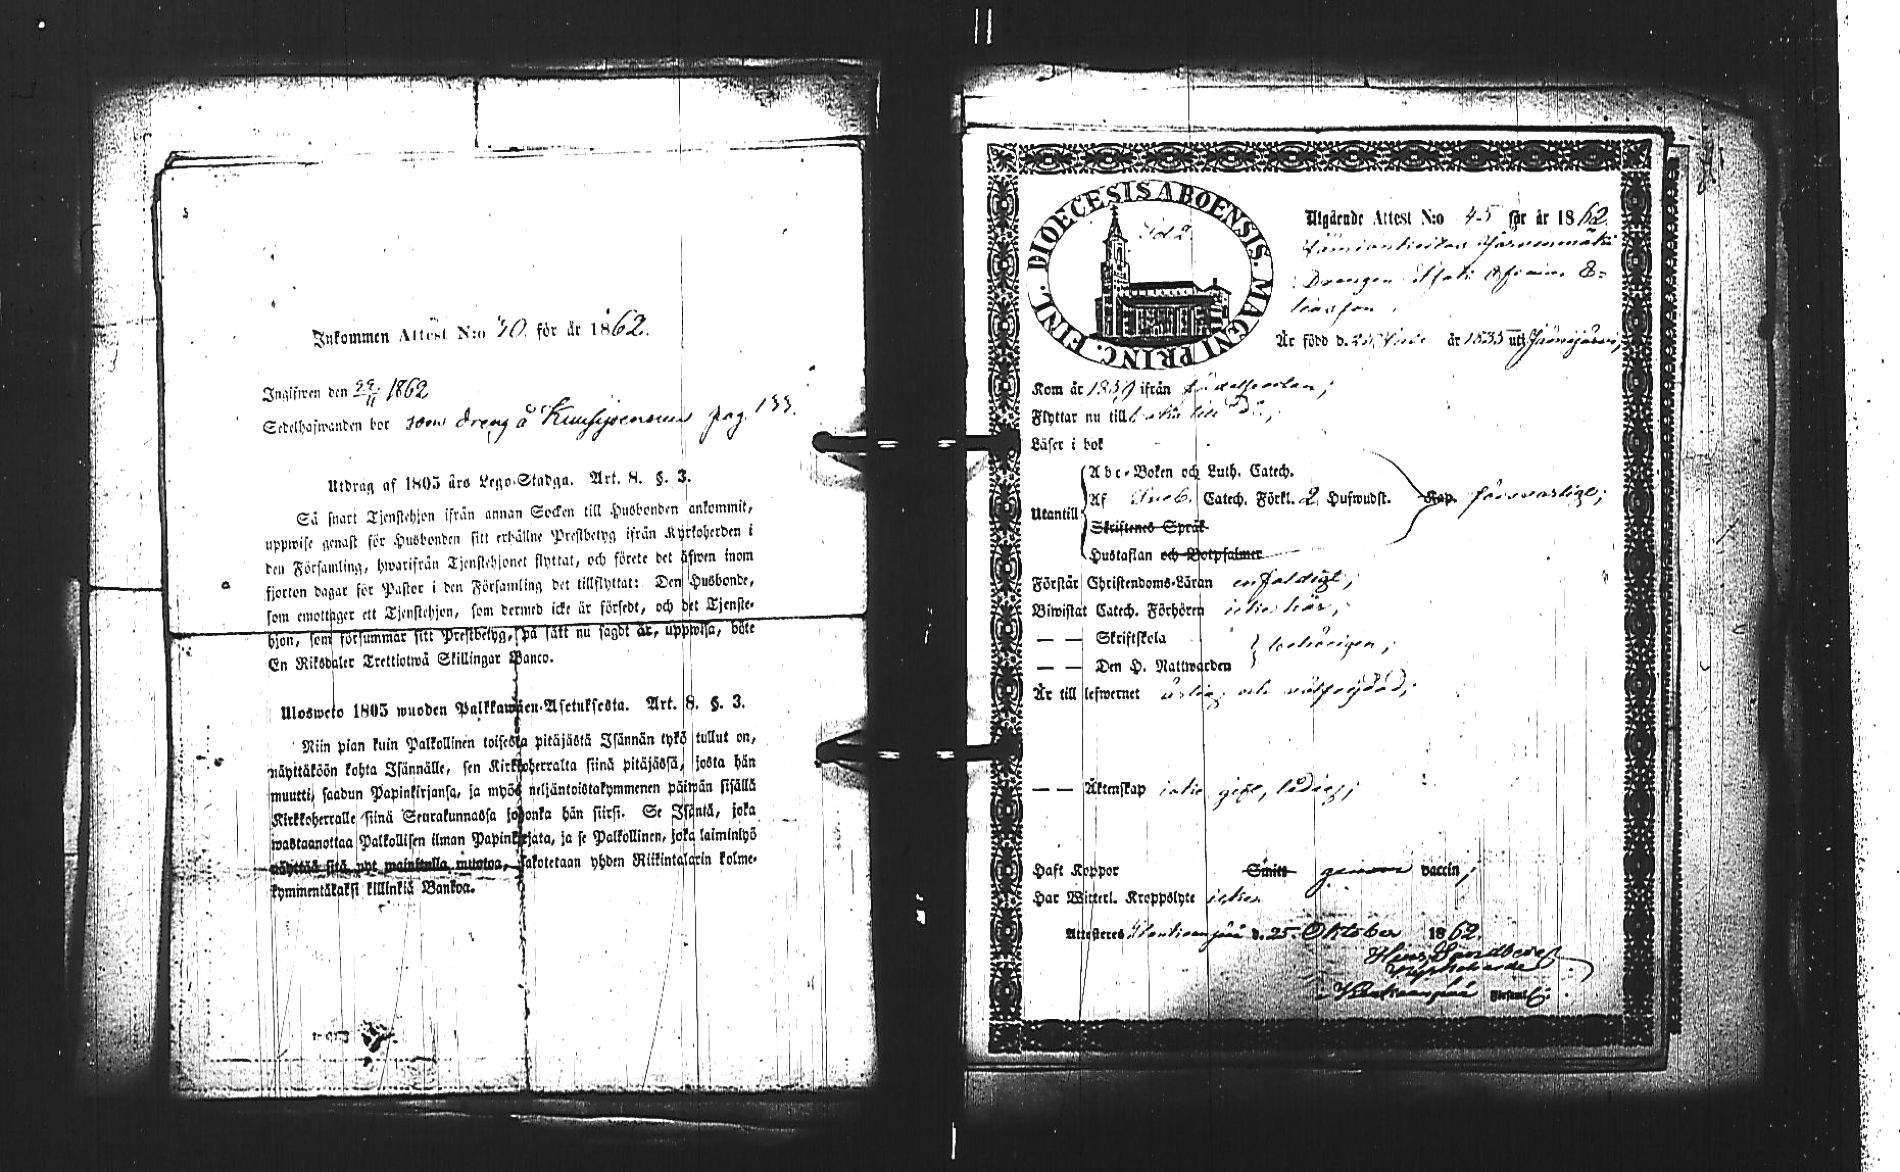 Inkommen Attest N:o 40. för år 1862.
Ingifwen den 29/11 1862
Sedelhafwanden bor som dreng å pag. 133.
Utdrag af 1805 års Lego-Stadga. Art. 8. §. 3.
Så snart Tjenstehjon ifrån annan Socken till Husbonden ankommit,
uppwise genast för Husbonden sitt erhållne Prestbetyg ifrån Kyrkoherden i
den Församling, hwarifrån Tjenstehjonet flyttat, och förete det äfwen inom
fjorton dagar för Pastor i den Församling det tillflyttat: Den Husbonde,
som emottager ett Tjenstehjon, som dermed icke är försedt, och det Tjenste-
hjon, som försummar sitt Prestbetyg, på sätt nu sagdt är, uppwisa, böte
En Riksdaler Trettiotwå Skillingar Banco.
Ulosweto 1805 wuoden Palkkawäen-Asetuksesta. Art. 8. §. 3.
Niin pian kuin Palkollinen toisesta pitäjästä Isännän tykö tullut on,
näyttäköön kohta Isännälle, sen Kirkkoherralta siinä pitäjässä, josta hän
muutti, saadun Papinkirjansa, ja myös neljäntoistakymmenen päiwän sisällä
Kirkkoherralle siinä Seurakunnassa johonka hän siirsi. Se Isäntä, joka
wastaanottaa Palkollisen ilman Papinkirjata, ja se Palkollinen, joka laiminlyö
näyttää sitä nyt mainitulla muotoa, sakotetaan yhden Riikintalarin kolme-
kymmentäkaksi killinkiä Bankoa.
FINL. DIOECESIS ABOENSIS. MAGNI PRINC.
Utgående Attest N:o 45 för år 1862.
Drengen
Är född d. år 1835 uti Jämijärvi,
Kom år 1859 ifrån födelseorten;
Flyttar nu till
Läser i bok
Abc-Boken och Luth. Catech.
Utantill Af Catech. Förkl. 2 Hufwudst. Kap. försvarligt;
Skriftenes Språk
Hustaflan och Botpsalmer
Förstår Christendoms-Läran enfaldigt;
Biwistat Catech. Förhören icke här;
— — Skriftskola
— — Den H. Nattwarden behörigen;
Är till lefwernet ärlig och välfrejdad;
— — Äktenskap icke gift, ledig;
Haft Koppor Smitt genom vaccin;
Har Witterl. Kroppslyte icke.
Attesteras Kankaanpää d. 25. Oktober 1862.
Kyrkoherde
Kankaanpää Församl: